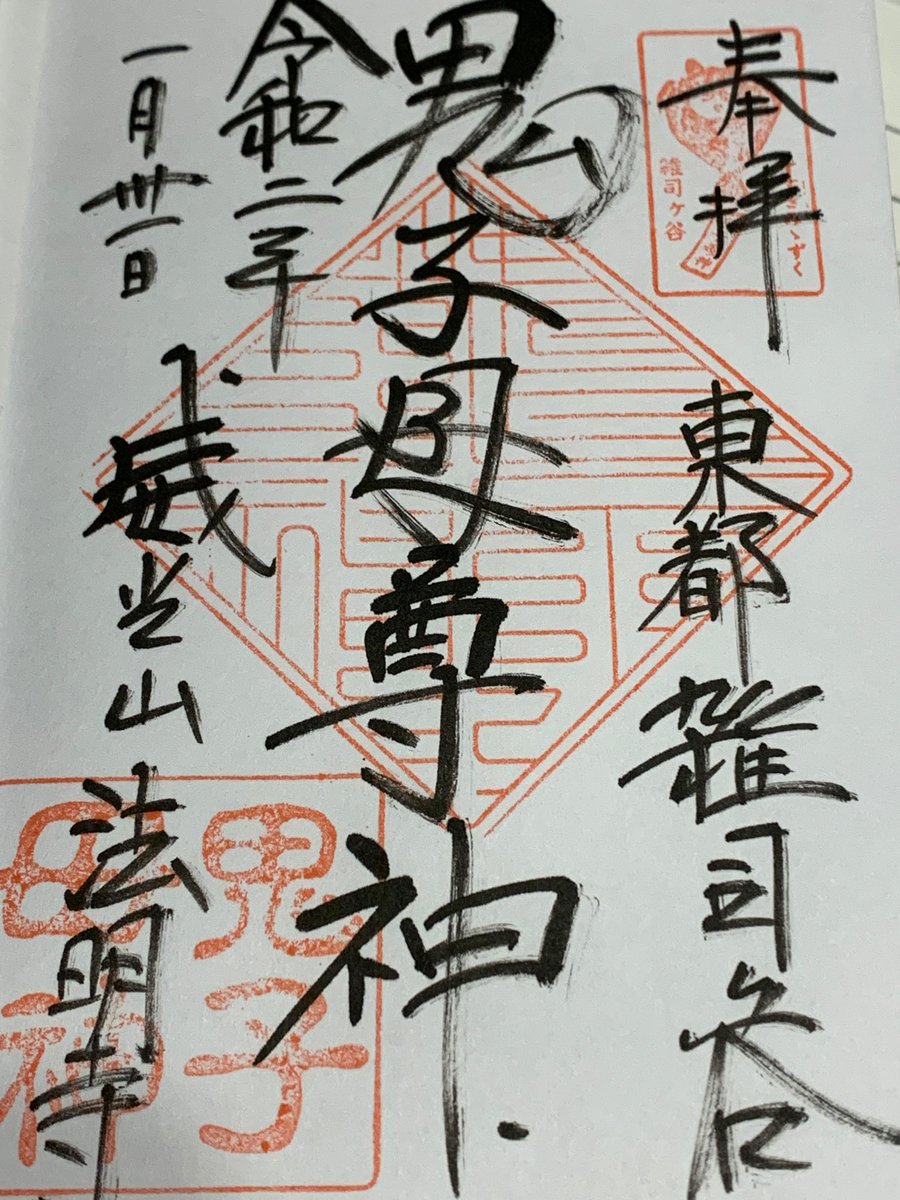 奉拝
雑司ヶ谷
東都 雑司谷
鬼子母尊神
令和二年
一月卅一日
威光山 法明寺
鬼子
母神